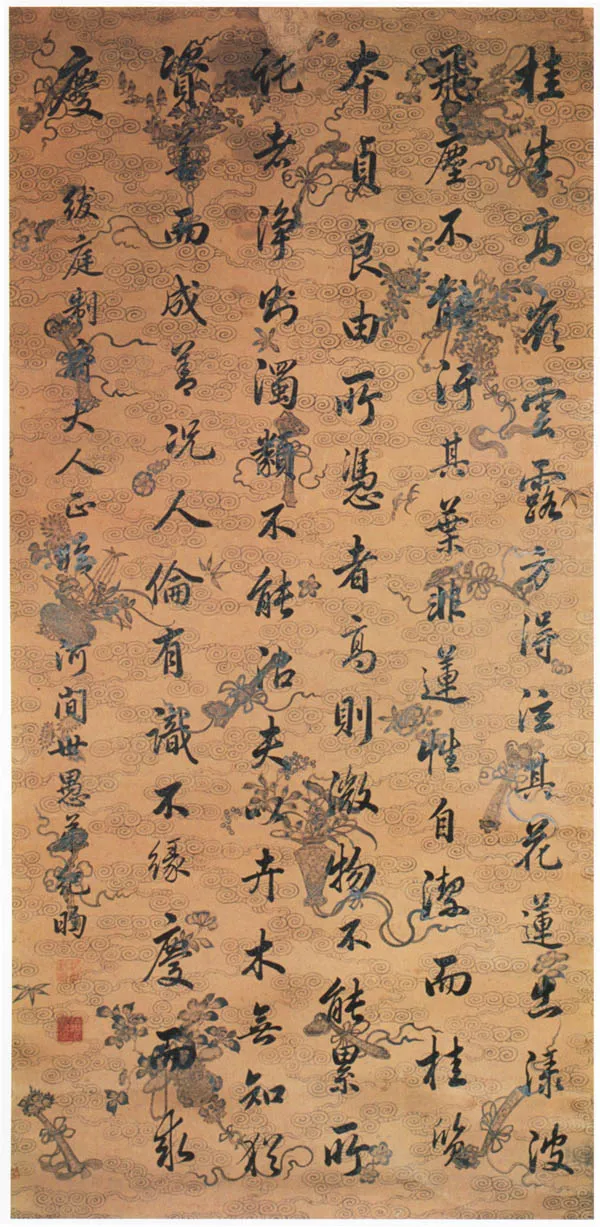 桂生高嶺雲露方得注其花蓮出淥波
飛塵不能汙其葉非蓮性自潔而桂質
本貞良由所憑者高則微物不能累所
託者淨則濁類不能沾夫以卉木無知猶
資善而成善況人倫有識不緣慶而求
慶 紱庭制府大人正臨 河間世愚弟紀昀